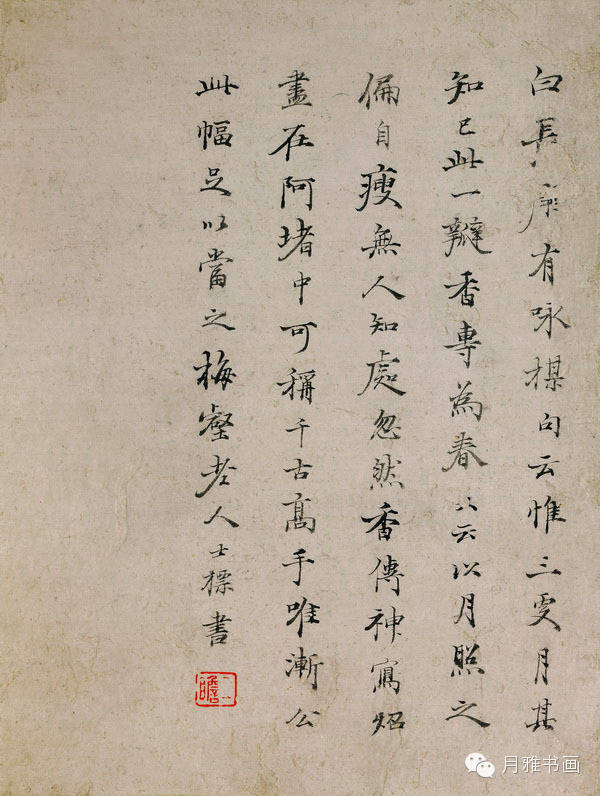 長有咏楳句云惟三更月其
知己此一瓣香專為春又云以月照之
偏自瘦無人知處忽然香傳神寫炤
盡在阿堵中可稱千古高手唯漸公
此幅足以當之梅壑老人士標書
二瞻
月雅书画